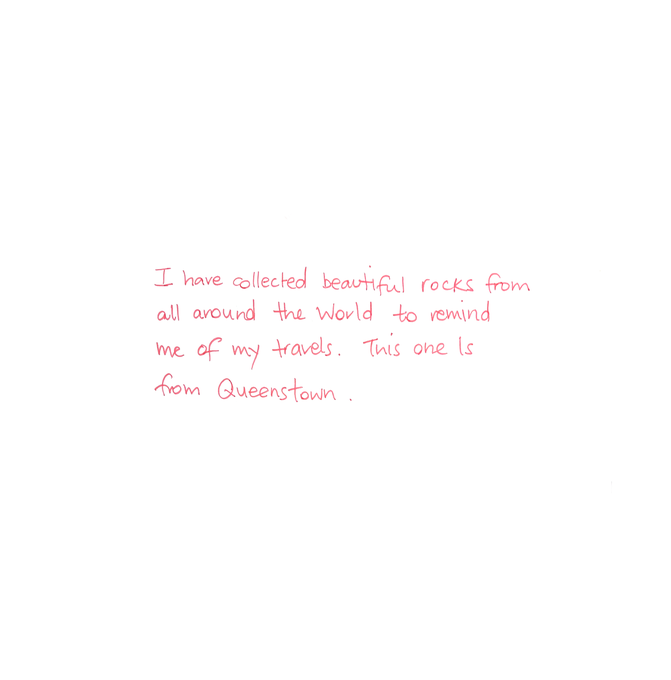 I have collected beautiful rocks from
all around the World to remind
me of my travels. This one Is
from Queenstown.